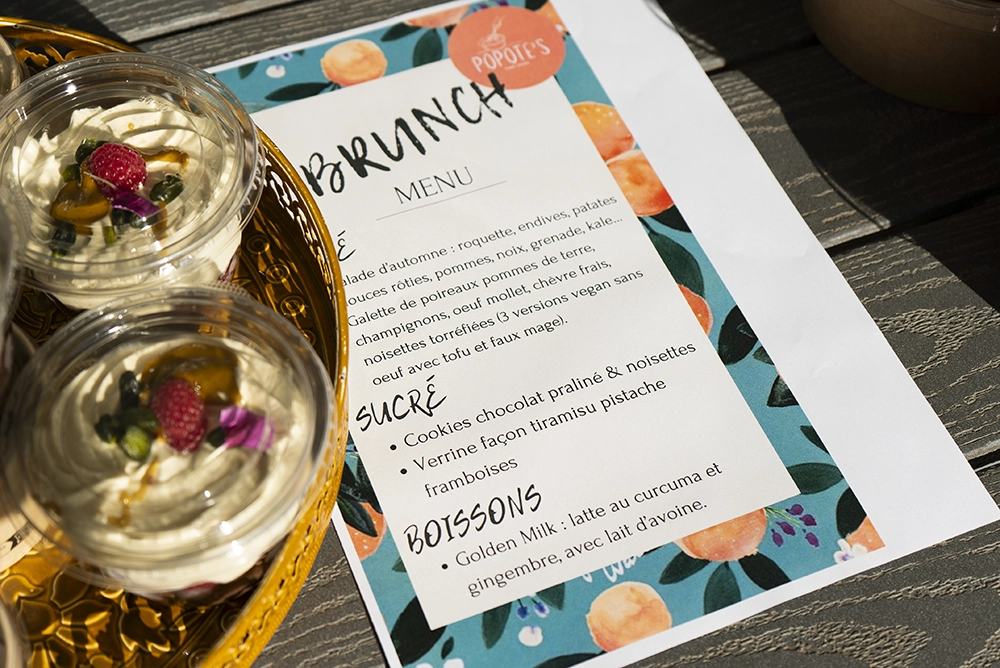 POPOTE'S
BRUNCH
MENU
É
lade d'automne : roquette, endives, patates
ouces rôtles, pommes, noix, grenade, kale...
Galette de poireaux pommes de terre,
champignons, oeuf mollet, chèvre frais,
noisettes torréfiées (3 versions vegan sans
oeuf avec tofu et faux mage).
SUCRÉ
• Cookies chocolat praliné & noisettes
• Verrine façon tiramisu pistache
framboises
BOISSONS
• Golden Milk : latte au curcuma et
gingembre, avec lait d'avoine.